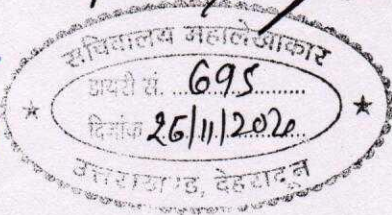 सचिवालय महालेखाकार
डायरी सं. 695
दिनांक 26/11/2020
उत्तराखण्ड, देहरादून